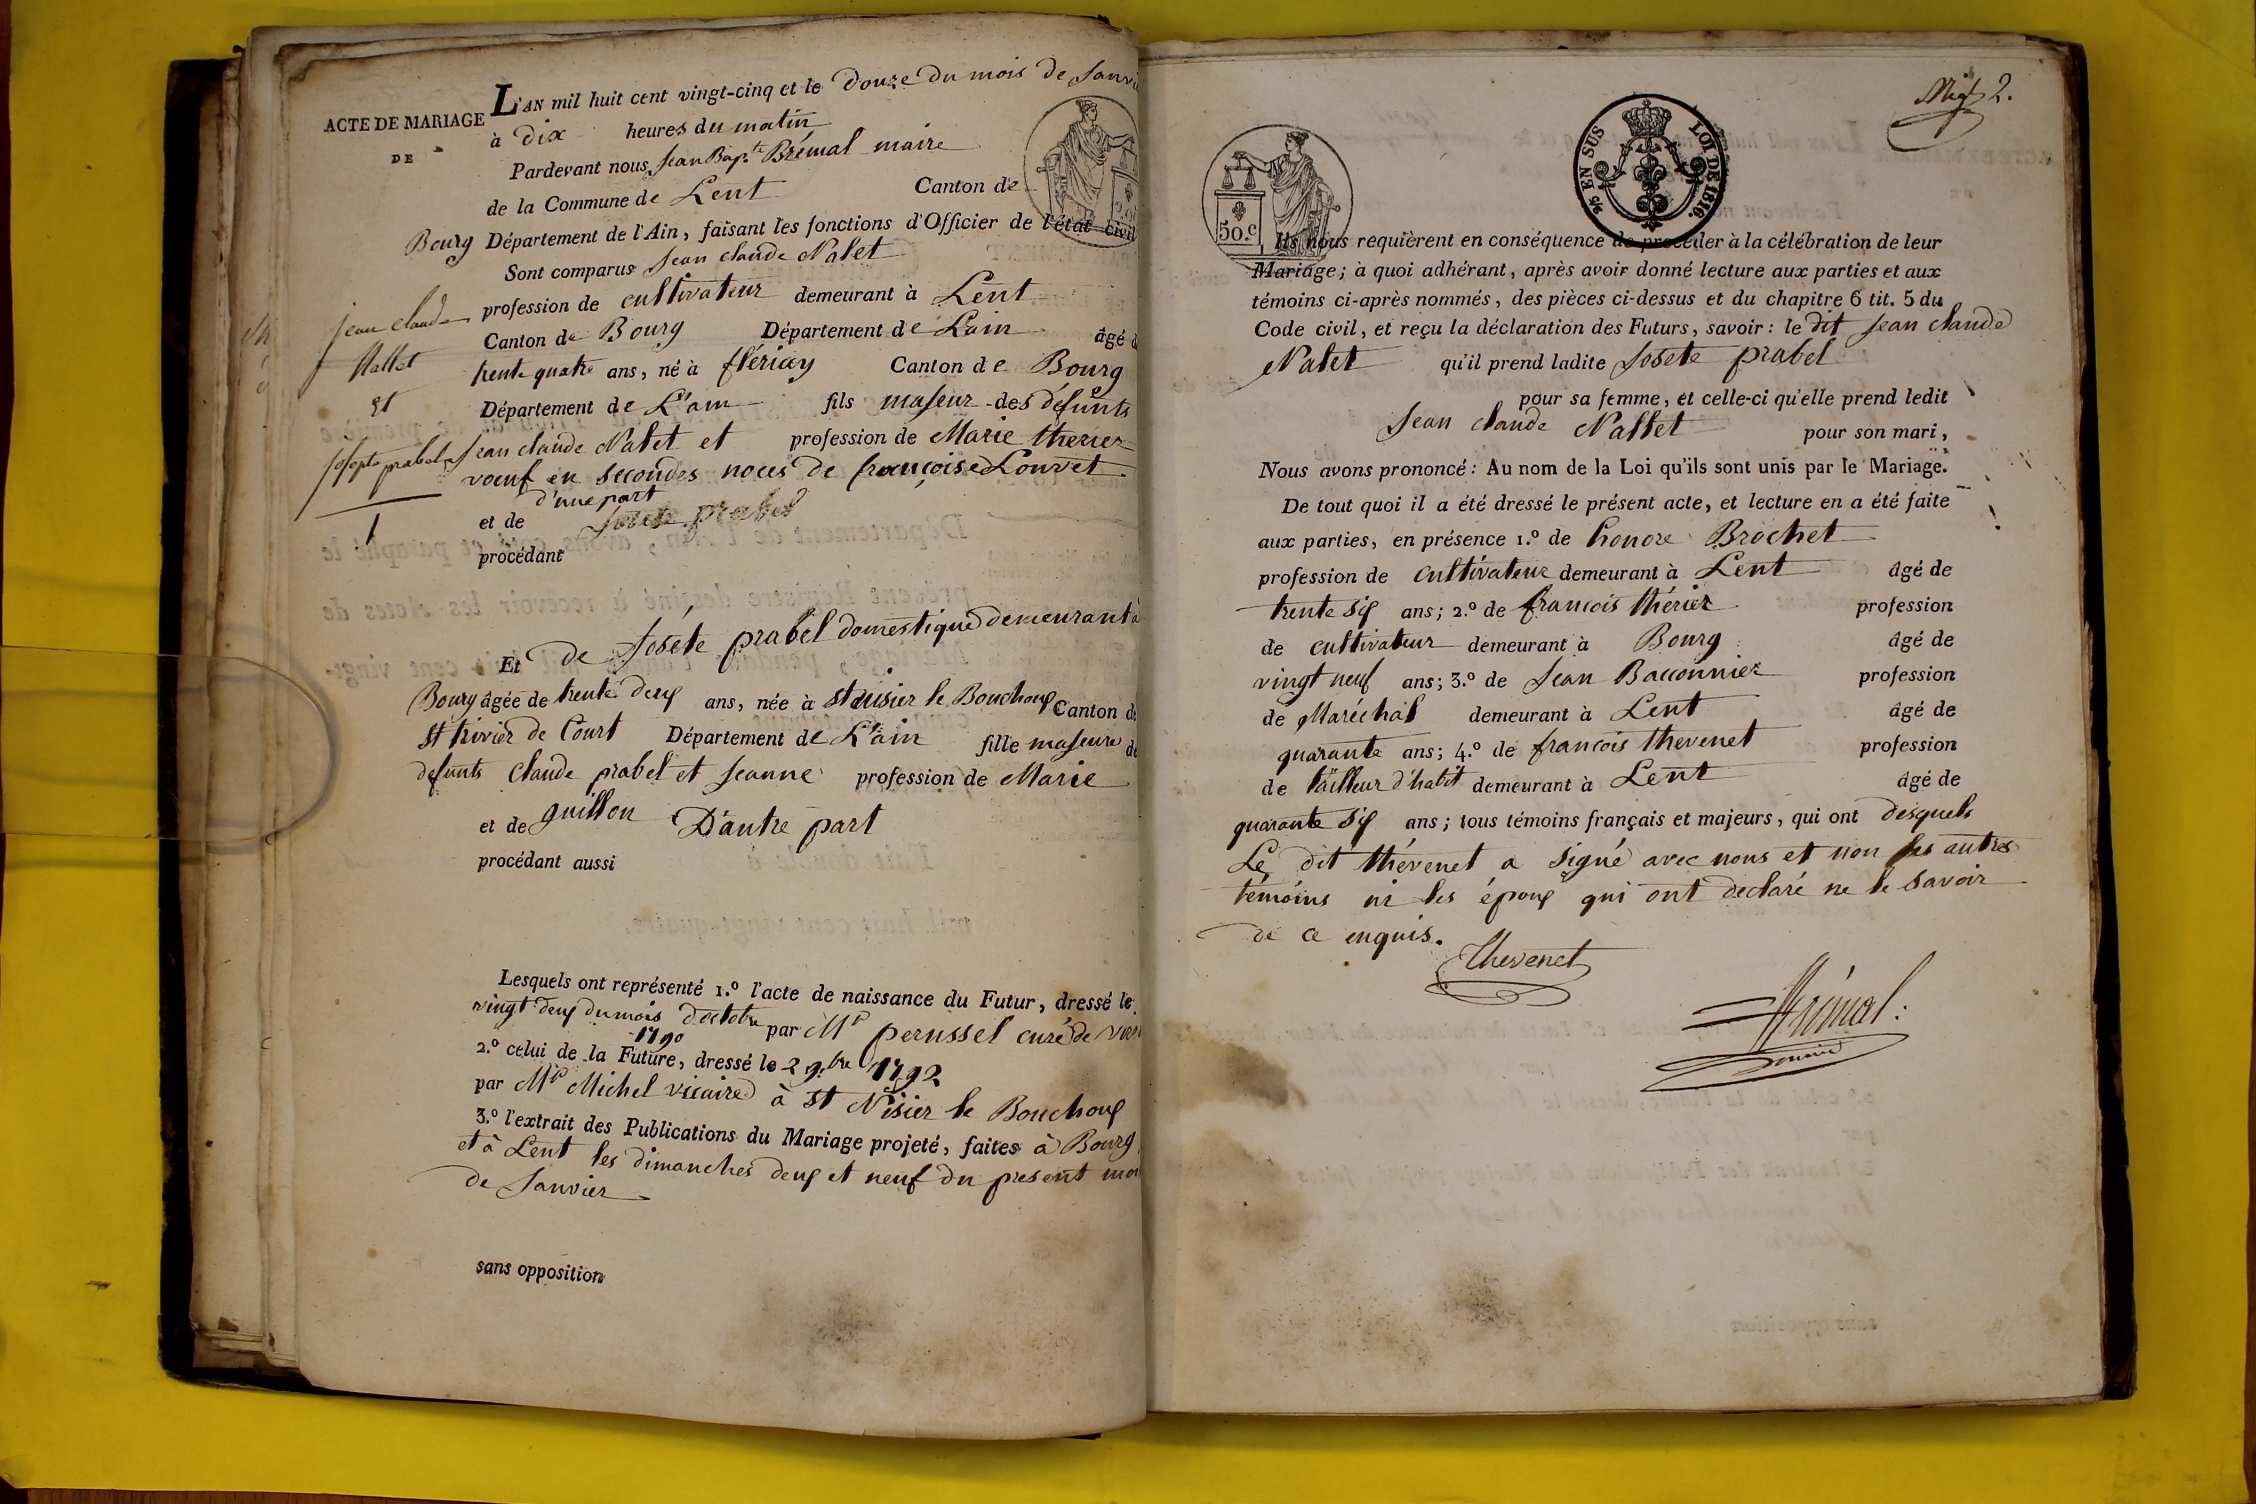 L'AN mil huit cent vingt-cinq et le Douze Du mois De Janvi
ACTE DE MARIAGE
DE
à Dix heures du matin
Pardevant nous, Jean Bapte Brémal maire
de la Commune de Lent Canton de
Bourg Département de l'Ain, faisant les fonctions d'Officier de l'état civil
Sont comparus Jean claude Nalet
profession de cultivateur demeurant à Lent
Canton de Bourg Département de Lain âgé d
trente quatre ans, né à flériay Canton de Bourg
Département de L'ain fils majeur des défunts
Jean claude Nalet et profession de Marie therier
voeuf en secondes noces de françoise Louvet
d'une part
et de Josete prabel
procédant
Jean claude
Nallet
et
Josepte prabel
1
Et De Joséte prabel domestique demeurant à
Bourg âgée de trente deux ans, née à st nisier le Bouchoux Canton de
st trivier de Court Département de L'ain fille majeure de
defunts claude prabel et Jeanne profession de Marie
et de guillon D'autre part
procédant aussi
Lesquels ont représenté 1.º l'acte de naissance du Futur, dressé le
vingt deux du mois d'octobre 1790 par Mr perussel curé de
2.º celui de la Future, dressé le 2 9.bre 1792
par Mr Michel vicaire à st Nisier le Bouchoux
3.º l'extrait des Publications du Mariage projeté, faites à Bourg
et à Lent les dimanches deux et neuf du present moi
de Janvier
sans opposition
2.
50.c
5/6 EN SUS LOI DE 1816.
Ils nous requièrent en conséquence de procéder à la célébration de leur
Mariage; à quoi adhérant, après avoir donné lecture aux parties et aux
témoins ci-après nommés, des pièces ci-dessus et du chapitre 6 tit. 5 du
Code civil, et reçu la déclaration des Futurs, savoir: le dit Jean claude
Nalet qu'il prend ladite Josete prabel
pour sa femme, et celle-ci qu'elle prend ledit
Jean claude Nallet pour son mari,
Nous avons prononcé: Au nom de la Loi qu'ils sont unis par le Mariage.
De tout quoi il a été dressé le présent acte, et lecture en a été faite
aux parties, en présence 1.º de honore Brochet
profession de cultivateur demeurant à Lent âgé de
trente six ans; 2.º de francois thérier profession
de cultivateur demeurant à Bourg âgé de
vingt neuf ans; 3.º de Jean Bacconnier profession
de Maréchal demeurant à Lent âgé de
quarante ans; 4.º de francois thevenet profession
de tailleur d'habit demeurant à Lent âgé de
quarante six ans; tous témoins français et majeurs, qui ont desquels
Le dit thévenet a signé avec nous et non les autres
témoins ni les époux qui ont declaré ne le savoir
de ce enquis.
Thevenet
Brémal
maire